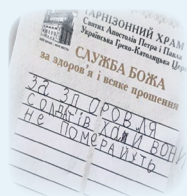 ГАРНІЗОННИЙ ХРАМ
Святих Апостолів Петра і Павла
Українська Греко-Католицька Церква
СЛУЖБА БОЖА
за здоров'я і всяке прошення
ЗА ЗДОРОВЛЯ
СОЛДАТІВ ХАЙ ВОНИ
НЕ ПОМЕРАЙУТЬ